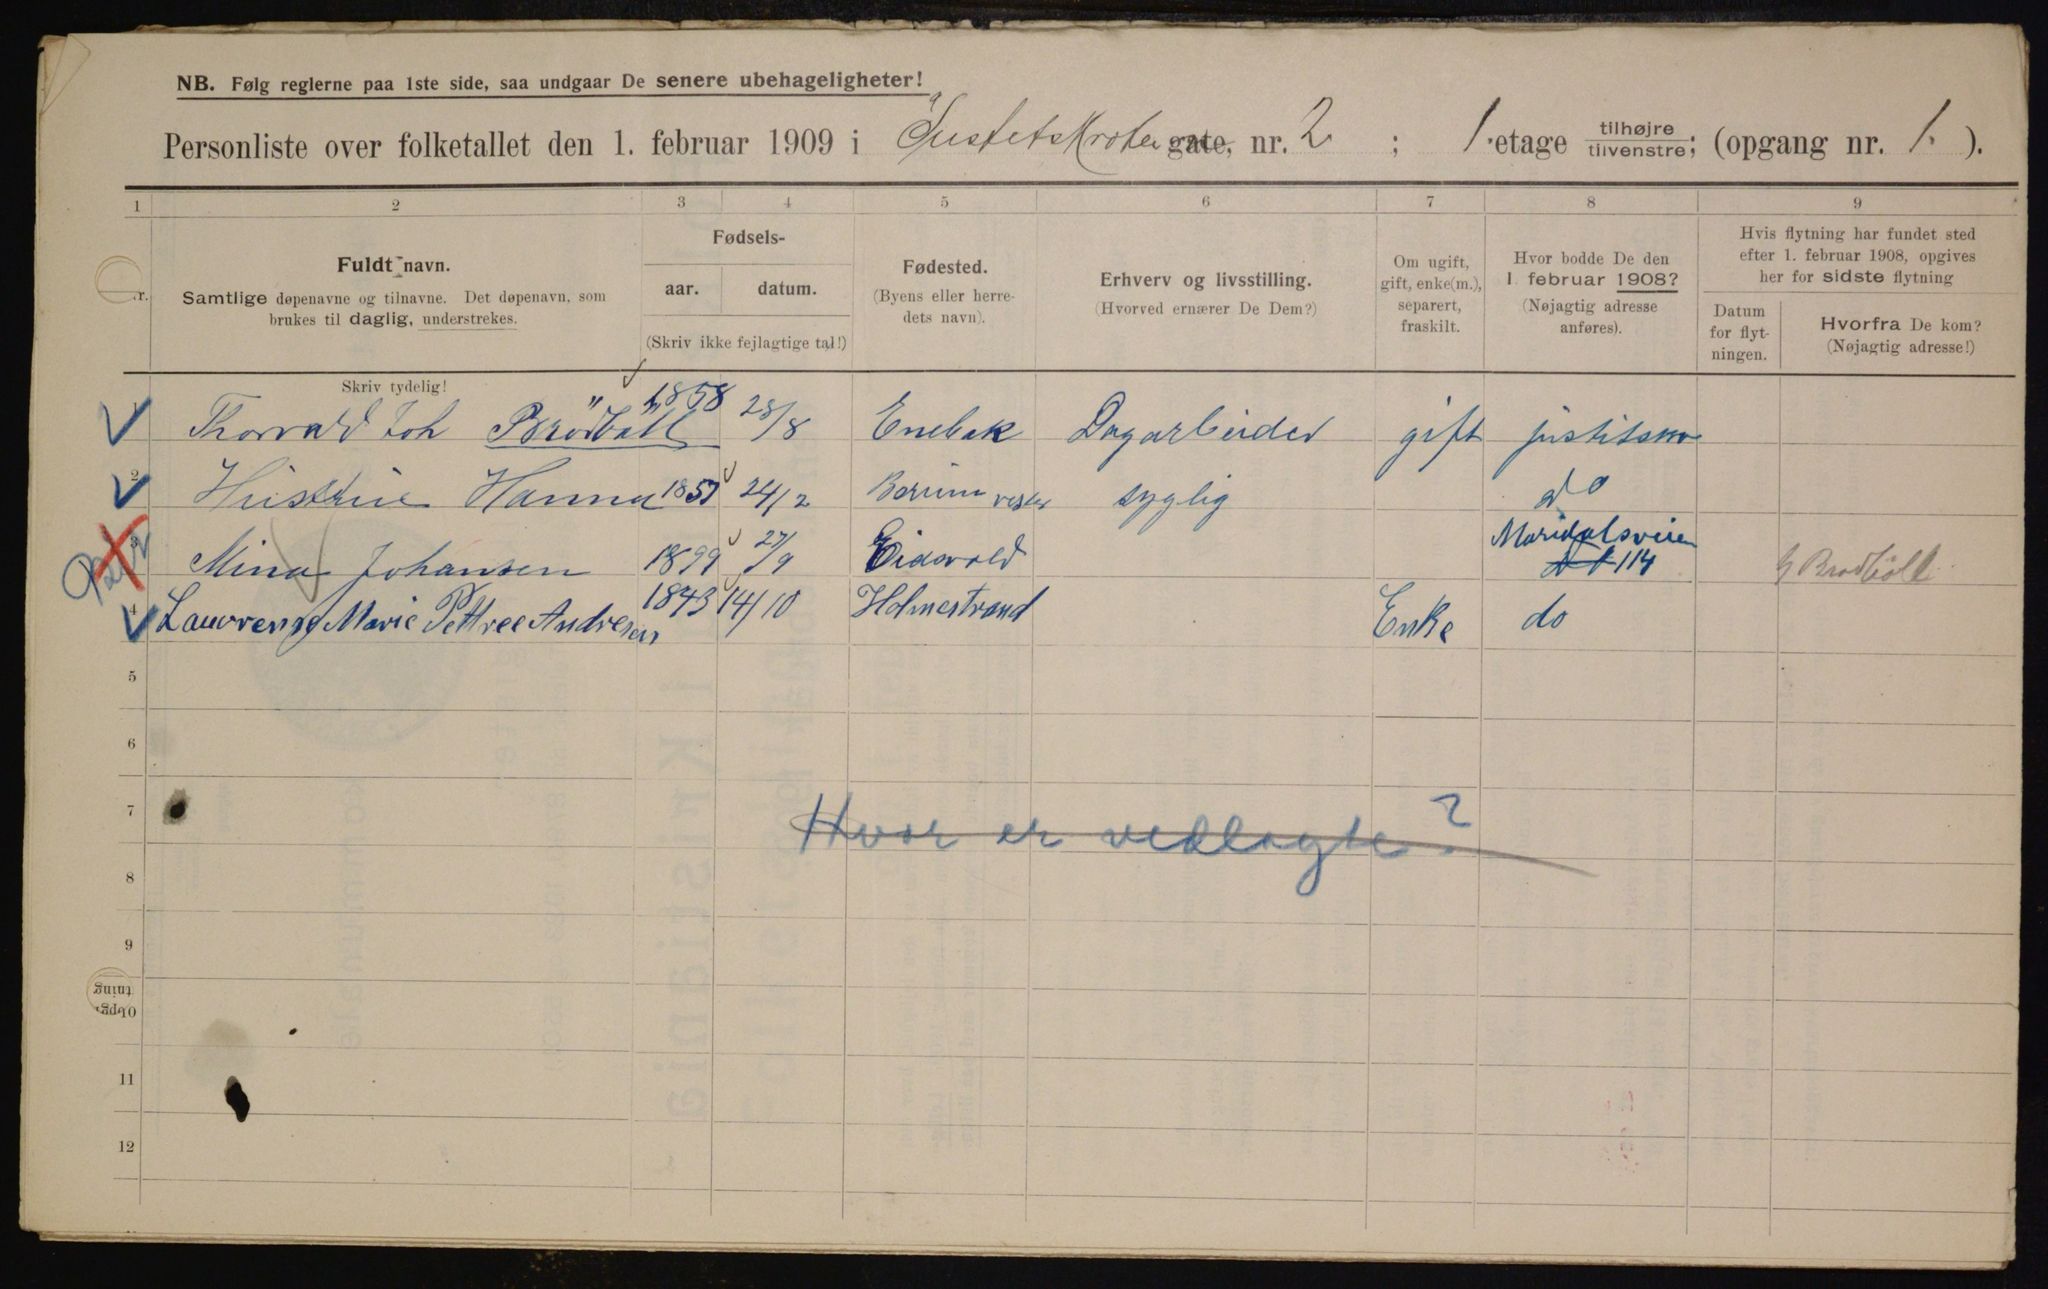 NB. Følg reglerne paa 1ste side, saa undgaar De senere ubehageligheter!
Personliste over folketallet den 1. februar 1909 i Justetskroken gate, nr. 2 ; 1. etage tilhøjre/tilvenstre; (opgang nr. 1. ).
1 2 3 4 5 6 7 8 9
Nr.
Fuldt navn.
Samtlige døpenavne og tilnavne. Det døpenavn, som
brukes til daglig, understrekes.
Skriv tydelig!
Fødsels-
aar. datum.
(Skriv ikke fejlagtige tal!)
Fødested.
(Byens eller herre-
dets navn).
Erhverv og livsstilling.
(Hvorved ernærer De Dem?)
Om ugift,
gift, enke(m.),
separert,
fraskilt.
Hvor bodde De den
1. februar 1908?
(Nøjagtig adresse
anføres).
Hvis flytning har fundet sted
efter 1. februar 1908, opgives
her for sidste flytning
Datum
for flyt-
ningen.
Hvorfra De kom?
(Nøjagtig adresse!)
1 Thorvald Joh Brödböll 1858 28/8 Enebak Dagarbeider gift justitskro
2 Hustrue Hanna 1857 24/2 Berum vester syglig do
3 Mina Johansen 1899 27/9 Eidsvold Maridalsveien 114 Brodböll
4 Lauvrense Marie Pettree Andresen 1843 14/10 Holmestrand Enke do
5
6
7 Hvor er vedlagte?
8
9
10
11
12